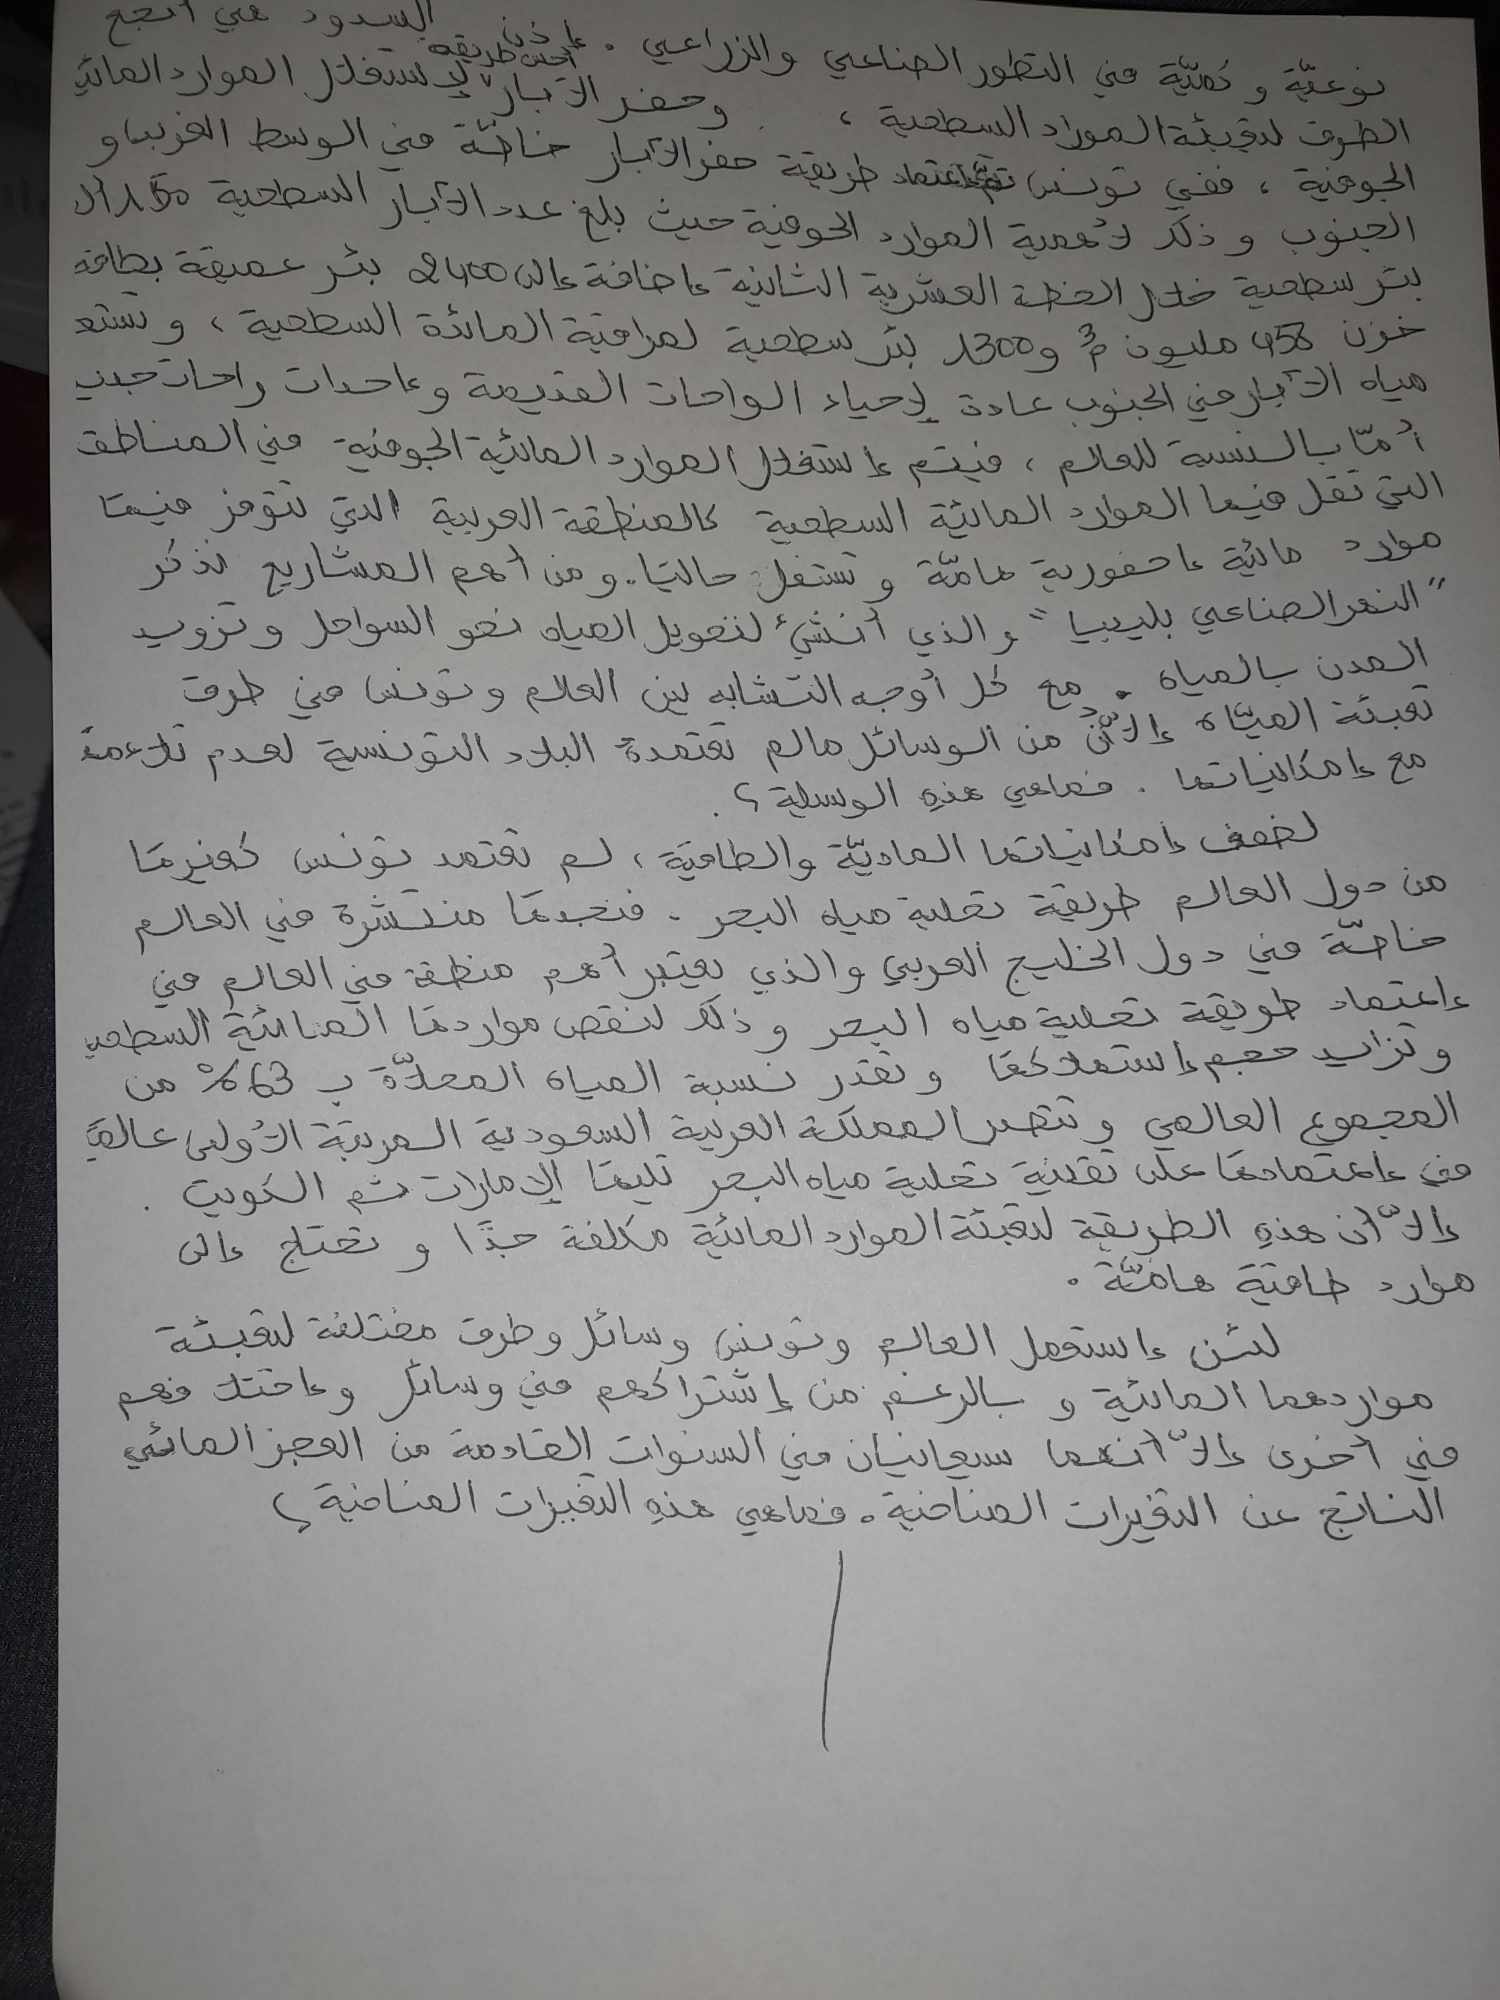 نوعيّة و كميّة في التطور الصناعي والزراعي . إذن السدود هي أنجع
الطرق لتعبئة الموراد السطحية ، وحفر الآبار أحسن طريقة لإستغلال الموارد المائية
الجوفية ، ففي تونس تمّ إعتماد طريقة حفر الآبار خاصّة في الوسط الغربي و
الجنوب و ذلك لأهمية الموارد الجوفية حيث بلغ عدد الآبار السطحية
بئر سطحية خلال الخطة العشرية الثانية إضافة إلى 2400 بئر عميقة بطاقة
خزن 458 مليون م3 و 1300 بئر سطحية لمراقبة المائدة السطحية ، و تستعمل
مياه الآبار في الجنوب عادة لإحياء الواحات القديمة و إحداث واحات جديدة
أمّا بالنسبة للعالم ، فيتم إستغلال الموارد المائية الجوفية في المناطق
التي تقل فيها الموارد المائية السطحية كالمنطقة العربية التي تتوفر فيها
موارد مائية إحفورية هامّة و تستغل حاليا . و من أهم المشاريع نذكر
"النهر الصناعي بليبيا" و الذي أنشئ لتحويل المياه نحو السواحل و تزويد
المدن بالمياه . مع كل أوجه التشابه بين العالم و تونس في طرق
تعبئة الميّاه إلاّ أنّ من الوسائل مالم تعتمدة البلاد التونسية لعدم تلاءمه
مع إمكانياتها . فماهي هذه الوسلية ؟ .
لضعف إمكانياتها الماديّة والطاقيّة ، لم تعتمد تونس كغيرها
من دول العالم طريقة تحلية مياه البحر . فنجدها منتشرة في العالم
خاصّة في دول الخليج العربي والذي يعتبر أهم منطقة في العالم في
إعتماد طريقة تحلية مياه البحر و ذلك لنقص مواردها المائية السطحية
و تزايد حجم إستهلاكها و تقدر نسبة المياه المحلاّة ب 63% من
المجموع العالمي و تتصدر المملكة العربية السعودية المرتبة الأولى عالميًا
في إعتمادها على تقنية تحلية مياه البحر تليها الإمارات ثم الكويت .
إلاّ أن هذه الطريقة لتعبئة الموارد المائية مكلفة جدّا و تحتاج إلى
موارد طاقية هامّة .
لئن إستعمل العالم و تونس وسائل و طرق مختلفة لتعبئة
مواردهما المائية و بالرغم من إشتراكهم في وسائل و إختلافهم
في أخرى إلاّ أنهما سيعانيان في السنوات القادمة من العجز المائي
الناتج عن التغيرات المناخية . فماهي هذه التغيرات المناخية ؟